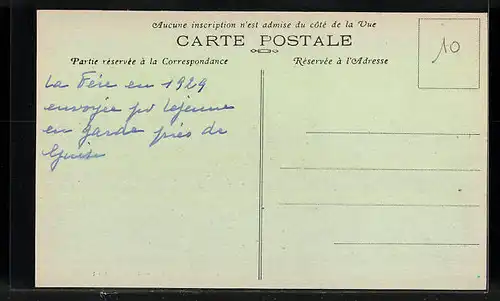 Aucune inscription n'est admise du côté de la Vue
CARTE POSTALE
Partie réservée à la Correspondance
Réservée à l'Adresse
10
La Fère en 1929
envoyée par Lejeune
en garde près de
Guise